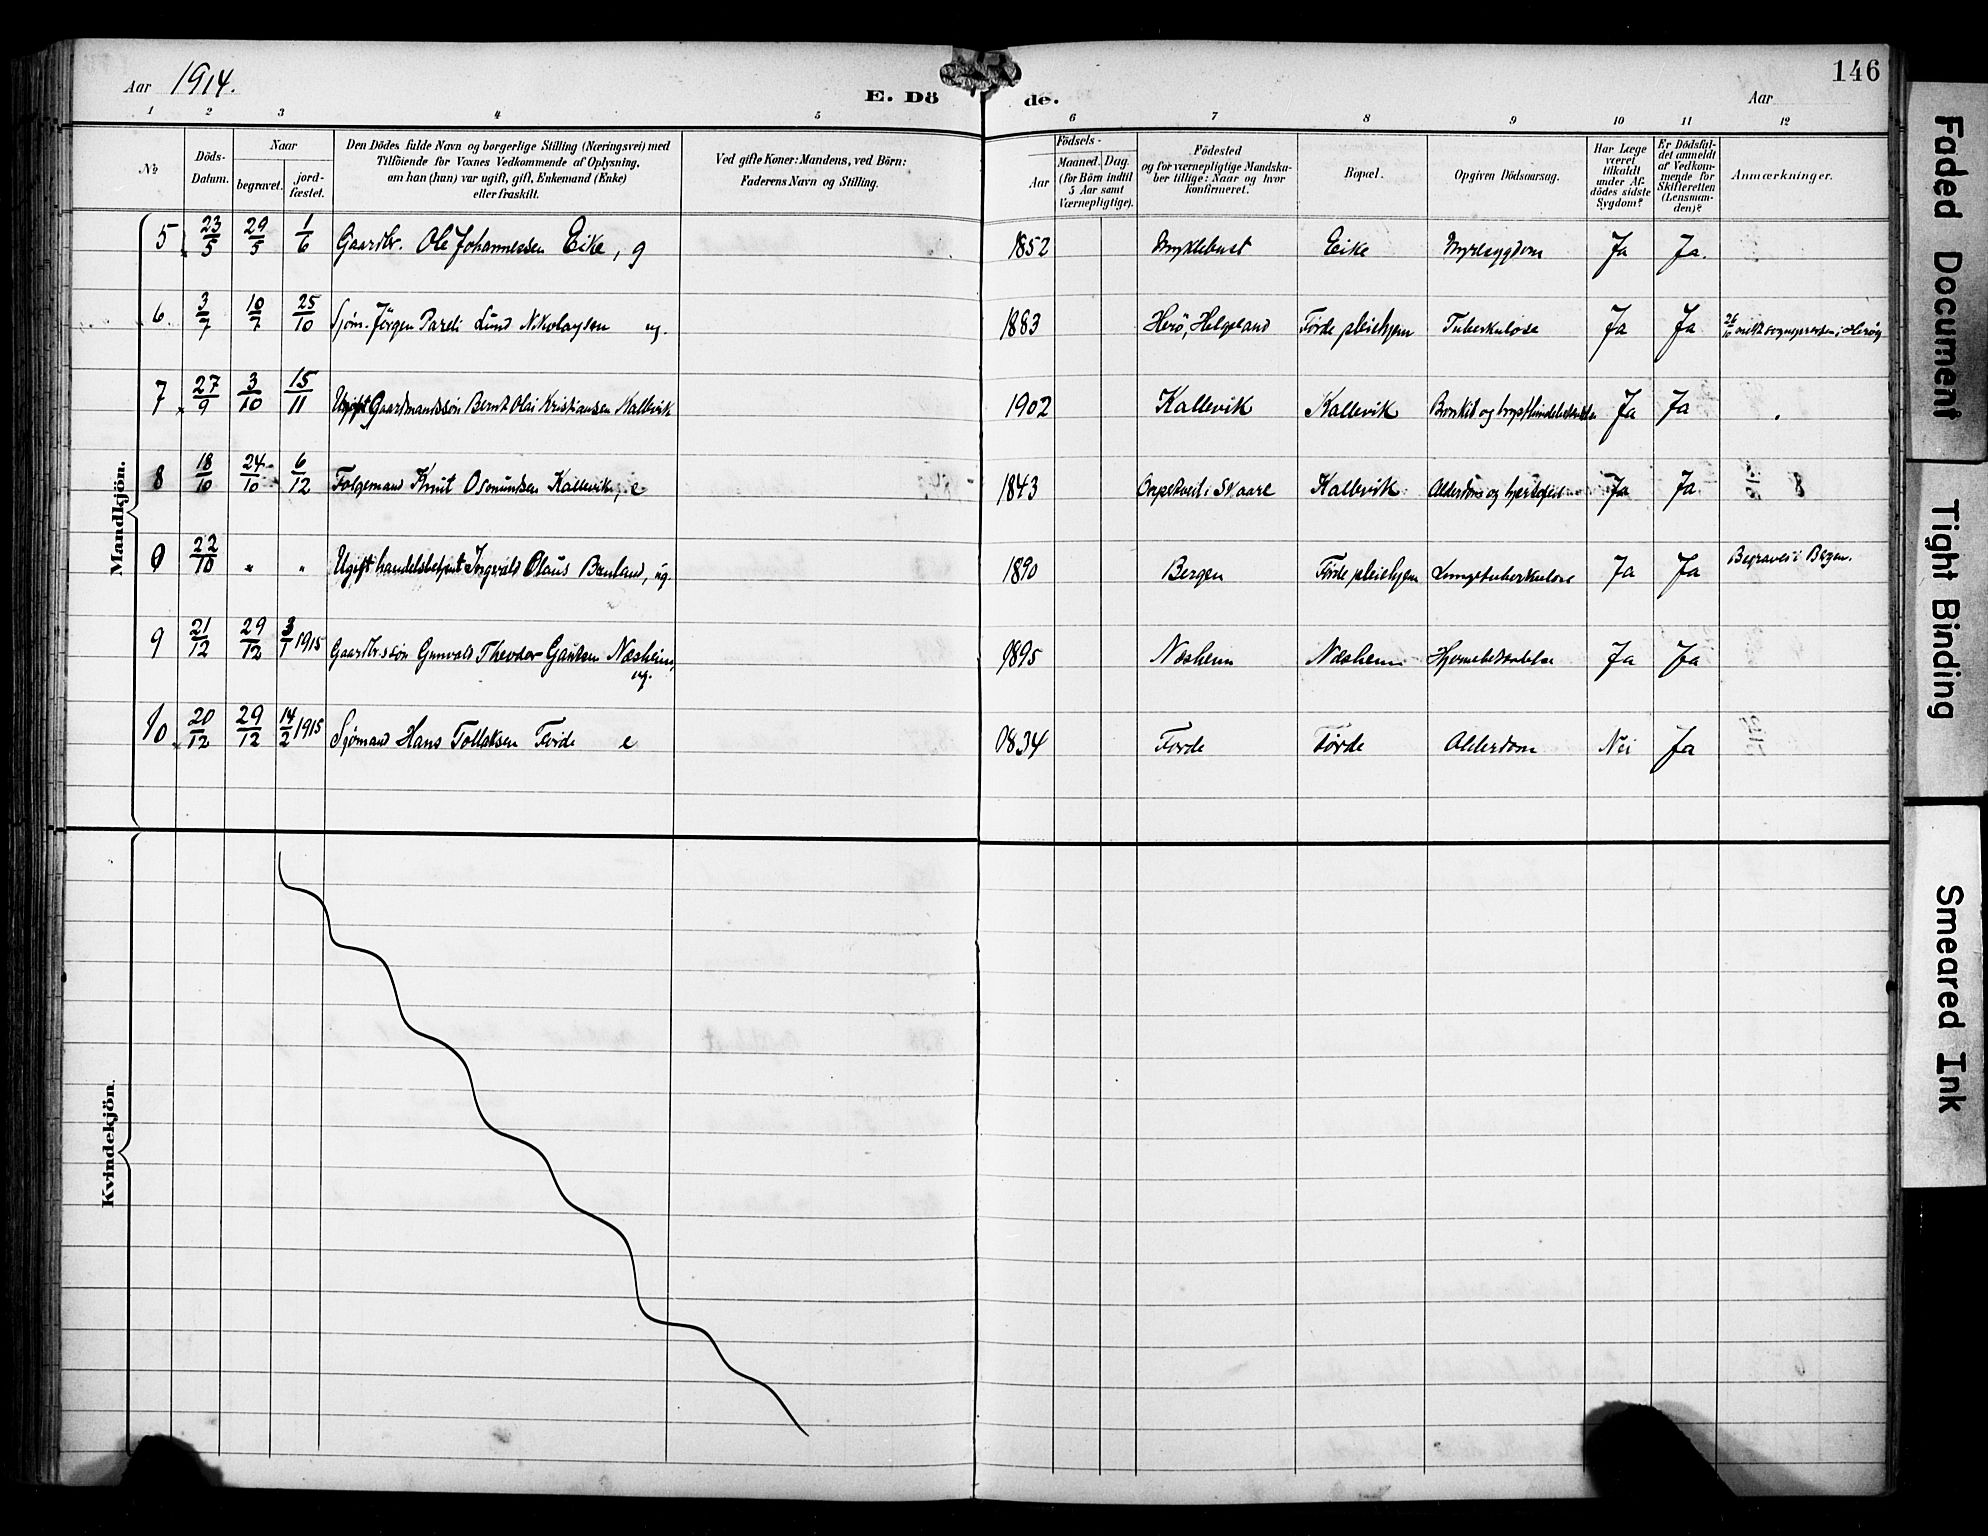 146
Aar 1914.
E. Dö de.
Aar
1 2 3 4 5 6 7 8 9 10 11 12
No
Döds-Datum.
Naar
begravet.
jordfæstet.
Den Dödes fulde Navn og borgerlige Stilling (Næringsvei) med
Tilföiende for Voxnes Vedkommende af Oplysning,
om han (hun) var ugift, gift, Enkemand (Enke)
eller fraskilt.
Ved gifte Koner: Mandens, ved Börn:
Faderens Navn og Stilling.
Födsels-
Aar
Maaned. Dag.
(for Börn indtil
5 Aar samt
Værnepligtige).
Födested
og for værnepligtige Mandska-
ber tillige: Naar og hvor
konfirmeret.
Bopæl.
Opgiven Dödsaarsag.
Har Læge
været
tilkaldt
under Af-
dödes sidste
Sygdom?
Er Dödsfal-
det anmeldt
af Vedkom-
mende for
Skifteretten
(Lensman-
den)?
Anmærkninger.
Mandkjön.
5 23/5 29/5 1/6 Gaardbr. Ole Johannessen Eike, g 1852 Myklebust Eike Nyresygdom Ja Ja.
6 3/7 10/7 25/10 Sjøm. Jörgen Pareli Lund Nikolaysen ug. 1883 Herö, Helgeland Førde pleiehjem Tuberkulose Ja Ja 26/10
7 27/9 3/10 15/11 Ugift Gaardmandssön Bernt Olai Kristiansen Kallevik 1902 Kallevik Kallevik Ja Ja
8 18/10 24/10 6/12 Folgemand Knut Osmundsen Kallevik, e 1843 Kallevik Alderdom og Ja Ja
9 22/10 " " Ugift handelsbetjent Ingvald Olaus ug. 1890 Bergen Førde pleiehjem Lungetuberkulose Ja Ja Begravet i Bergen.
9 21/12 29/12 3/1 1915 Gaardbr.søn Gunvald Theodor Gautsen Næsheim, ug. 1895 Næsheim Næsheim Hjernebetændelse Ja Ja
10 20/12 29/12 14/2 1915 Sjømand Hans Tollaksen Førde e 1834 Førde Førde Alderdom Nei Ja
Kvindekjön.
Faded Document
Tight Binding
Smeared Ink